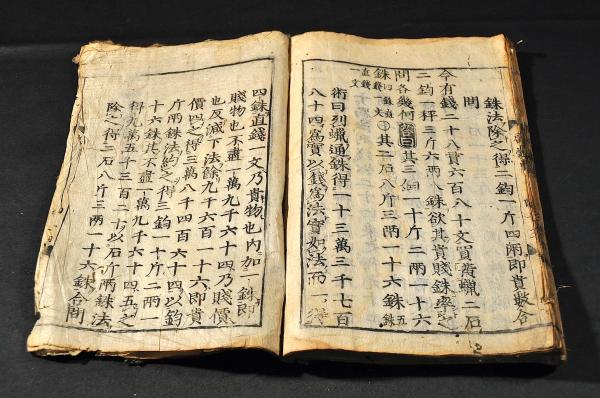 銖法除之得二鈞一斤四兩即貴數合
問
今有錢二十八貫六百八十文買黃蠟二石
二鈞一秤三斤六兩八銖欲其貴賤銖率之
問各幾何答曰其三鈞一十斤二兩一十六
銖四銖直錢一文其二石八斤三兩一十六銖五銖
直錢一文
術曰列蠟通銖得一十三萬三千七百
八十四爲實以錢爲法實如法而一得
四銖直錢一文乃貴物也內加一銖即
賤物也不盡一萬九千六十四乃賤價
也反減下法餘九千六百一十六即貴
價四之得三萬八千四百六十四以鈞
斤兩銖法約之得三鈞一十斤二兩一
十六銖其不盡一萬九千六十四五之
得九萬五千三百二十以石斤兩銖法
除之得二石八斤三兩一十六銖合問